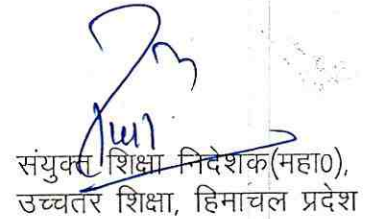 संयुक्त शिक्षा निदेशक(महा0),
उच्चतर शिक्षा, हिमाचल प्रदेश